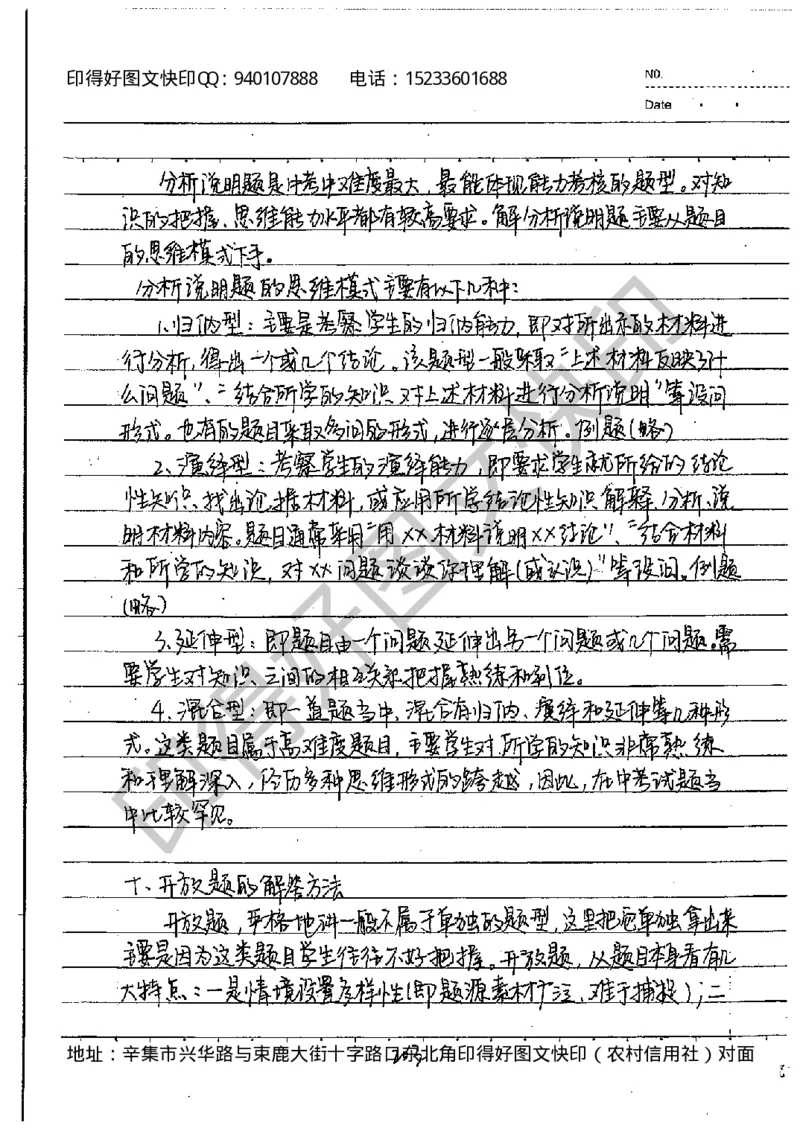 印得好图文快印QQ：940107888 电话：15233601688
NO.
Date
分析说明题是中考中难度最大，最能体现能力考核的题型。对知
识的把握、思维能力水平都有较高要求。解分析说明题主要从题目
的思维模式下手。
分析说明题的思维模式主要有以下几种：
1.归纳型：主要是考察学生的归纳能力，即对所出示的材料进
行分析，得出一个或几个结论。该题型一般采取“上述材料反映了什
么问题”、“结合所学的知识对上述材料进行分析说明”等设问
形式。也有的题目采取多问的形式，进行逐层分析。例题(略)
2、演绎型：考察学生的演绎能力，即要求学生就所给的结论
性知识，找出论据材料，或应用所学结论性知识解释、分析、说
明材料内容。题目通常采用“用××材料说明××结论”、“结合材料
和所学的知识，对××问题谈谈你理解(或认识)”等设问。例题
(略)
3.延伸型：即题目由一个问题延伸出另一个问题或几个问题。需
要学生对知识之间的相互关系把握熟练和到位。
4、混合型：即一道题当中，混合有归纳、演绎和延伸等几种形
式。这类题目属于高难度题目，主要学生对所学的知识非常熟练
和理解深入，经历多种思维形式的跨越，因此，在中考试题当
中比较罕见。
十、开放题的解答方法
开放题，严格地讲一般不属于单独的题型，这里把它单独拿出来
主要是因为这类题目学生往往不好把握。开放题，从题目本身看有几
大特点：一是情境设置多样性(即题源素材广泛，难于捕捉)；二
地址：辛集市兴华路与束鹿大街十字路口北角印得好图文快印（农村信用社）对面
印得好图文快印